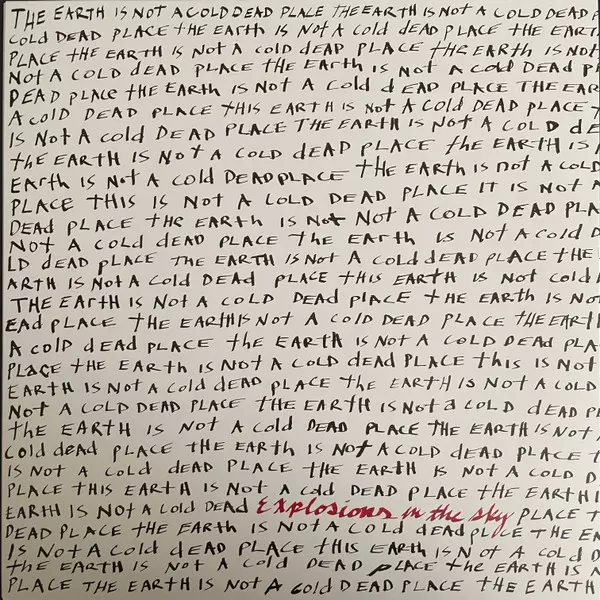 THE EARTH IS NOT A COLD DEAD PLACE THE EARTH IS NOT A COLD DEAD P
COLD DEAD PLACE THE EARTH IS NOT A COLD DEAD PLACE THE EART
PLACE THE EARTH IS NOT A COLD DEAD PLACE THE EARTH IS NOT
NOT A COLD DEAD PLACE THE EARTH IS NOT A COLD DEAD P
DEAD PLACE THE EARTH IS NOT A COLD DEAD PLACE THE EAR
A COLD DEAD PLACE THIS EARTH IS NOT A COLD DEAD PLACE
IS NOT A COLD DEAD PLACE THE EARTH IS NOT A COLD DE
THE EARTH IS NOT A COLD DEAD PLACE THE EARTH IS
EARTH IS NOT A COLD DEAD PLACE THE EARTH IS NOT A COLD
PLACE THIS IS NOT A COLD DEAD PLACE IT IS NOT A
DEAD PLACE THE EARTH IS NOT NOT A COLD DEAD PLA
NOT A COLD DEAD PLACE THE EARTH IS NOT A COLD D
LD DEAD PLACE THE EARTH IS NOT A COLD DEAD PLACE THE
ARTH IS NOT A COLD DEAD PLACE THIS EARTH IS NOT COLD
THE EARTH IS NOT A COLD DEAD PLACE THE EARTH IS NO
EAD PLACE THE EARTH IS NOT A COLD DEAD PLACE THE EART
A COLD DEAD PLACE THE EARTH IS NOT A COLD DEAD PLA
PLACE THE EARTH IS NOT A COLD DEAD PLACE THIS IS NOT
EARTH IS NOT A COLD DEAD PLACE THE EARTH IS NOT A COLD
NOT A COLD DEAD PLACE THE EARTH IS NOT A COLD DEAD P
THE EARTH IS NOT A COLD DEAD PLACE THE EARTH IS NOT
COLD DEAD PLACE THE EARTH IS NOT A COLD DEAD PLACE T
IS NOT A COLD DEAD PLACE THE EARTH IS NOT A COLD D
PLACE THIS EARTH IS NOT A COLD DEAD PLACE THE EARTH I
EARTH IS NOT A COLD DEAD Explosions in the sky PLACE T
DEAD PLACE THE EARTH IS NOT A COLD DEAD PLACE THE EA
IS NOT A COLD DEAD PLACE THIS EARTH IS NOT A COLD D
THE EARTH IS NOT A COLD DEAD PLACE THE EARTH IS N
PLACE THE EARTH IS NOT A COLD DEAD PLACE THE EARTH